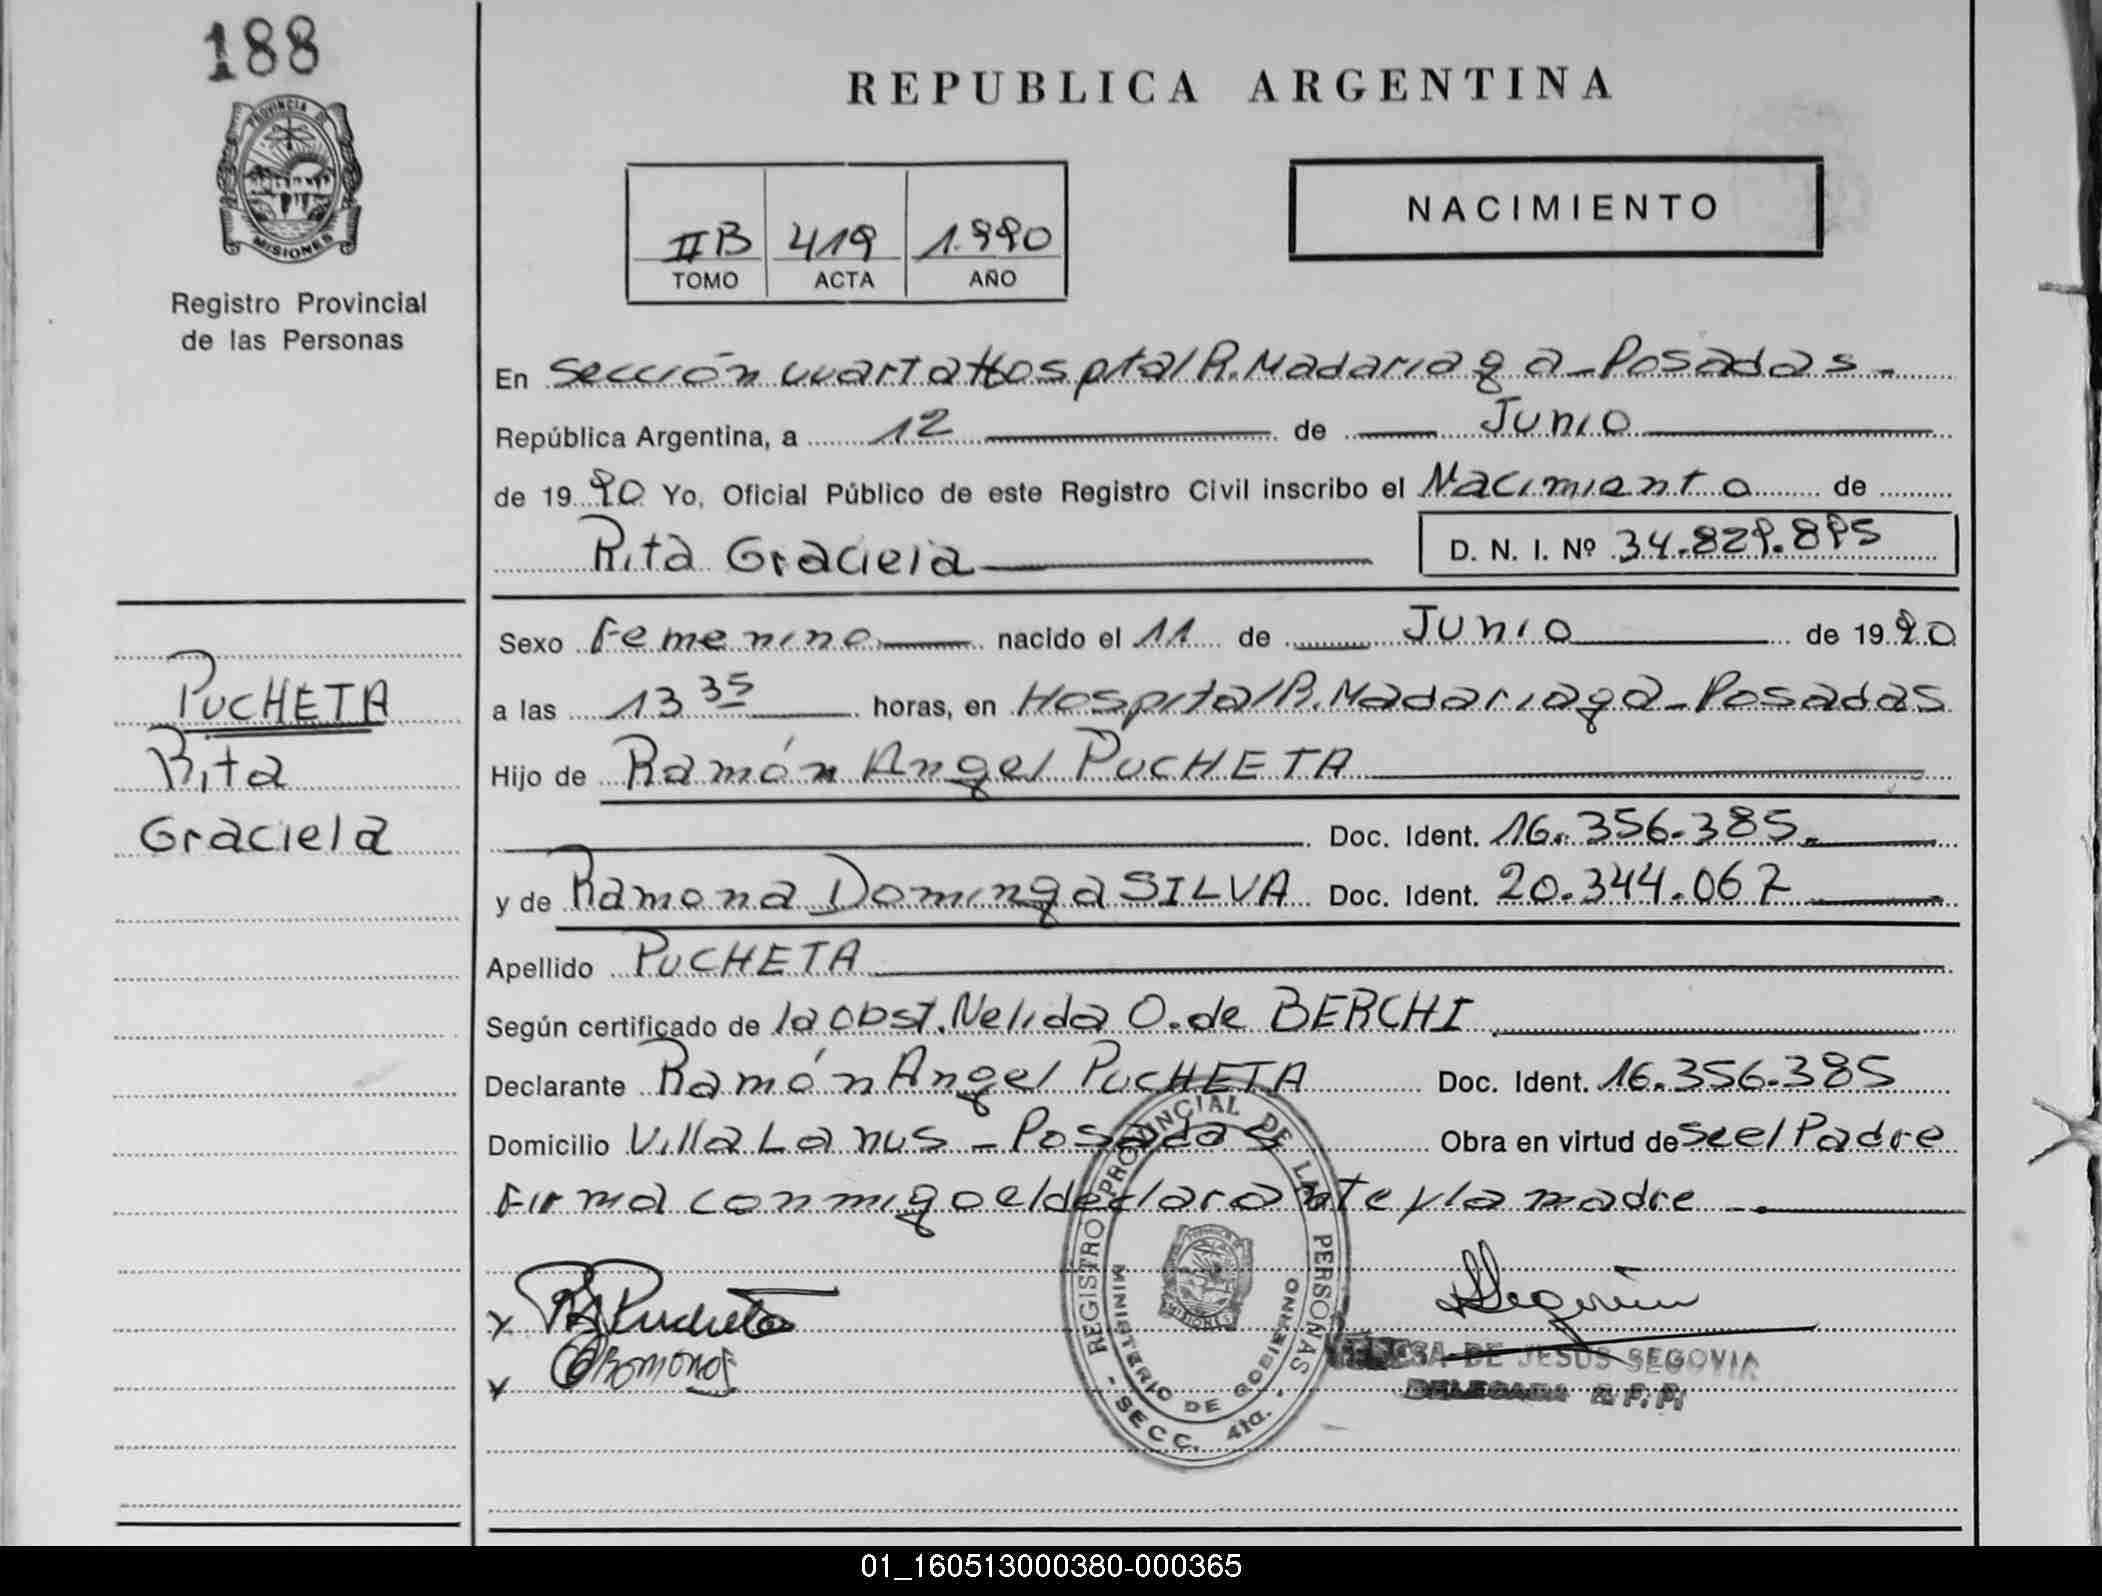 188
PROVINCIA DE
MISIONES
Registro Provincial
de las Personas
REPUBLICA ARGENTINA
IIB 419 1.990
TOMO ACTA AÑO
NACIMIENTO
En Sección cuarta Hospital R. Madariaga - Posadas.-
República Argentina, a 12 de Junio
de 1990 Yo, Oficial Público de este Registro Civil inscribo el Nacimiento de
Rita Graciela D. N. I. Nº 34.829.895
Sexo Femenino nacido el 11 de Junio de 1990
a las 13 35 horas, en Hospital R. Madariaga - Posadas
Hijo de Ramón Angel PUCHETA
Doc. Ident. 16.356.385.
y de Ramona Dominga SILVA Doc. Ident. 20.344.067
Apellido PUCHETA
Según certificado de la obst. Nelida O. de BERCHI
Declarante Ramón Angel PUCHETA Doc. Ident. 16.356.385
Domicilio Villa Lanus - Posadas Obra en virtud de Se el Padre
Firma conmigo el declarante y la madre -.
PUCHETA
Rita
Graciela
x R A Pucheta
x Ramona S
REGISTRO PROVINCIAL DE LAS PERSONAS
MINISTERIO DE GOBIERNO
- SECC. 4ta. -
MISIONES
Segovia
TERESA DE JESUS SEGOVIA
DELEGADA R. P. P.
01_160513000380-000365